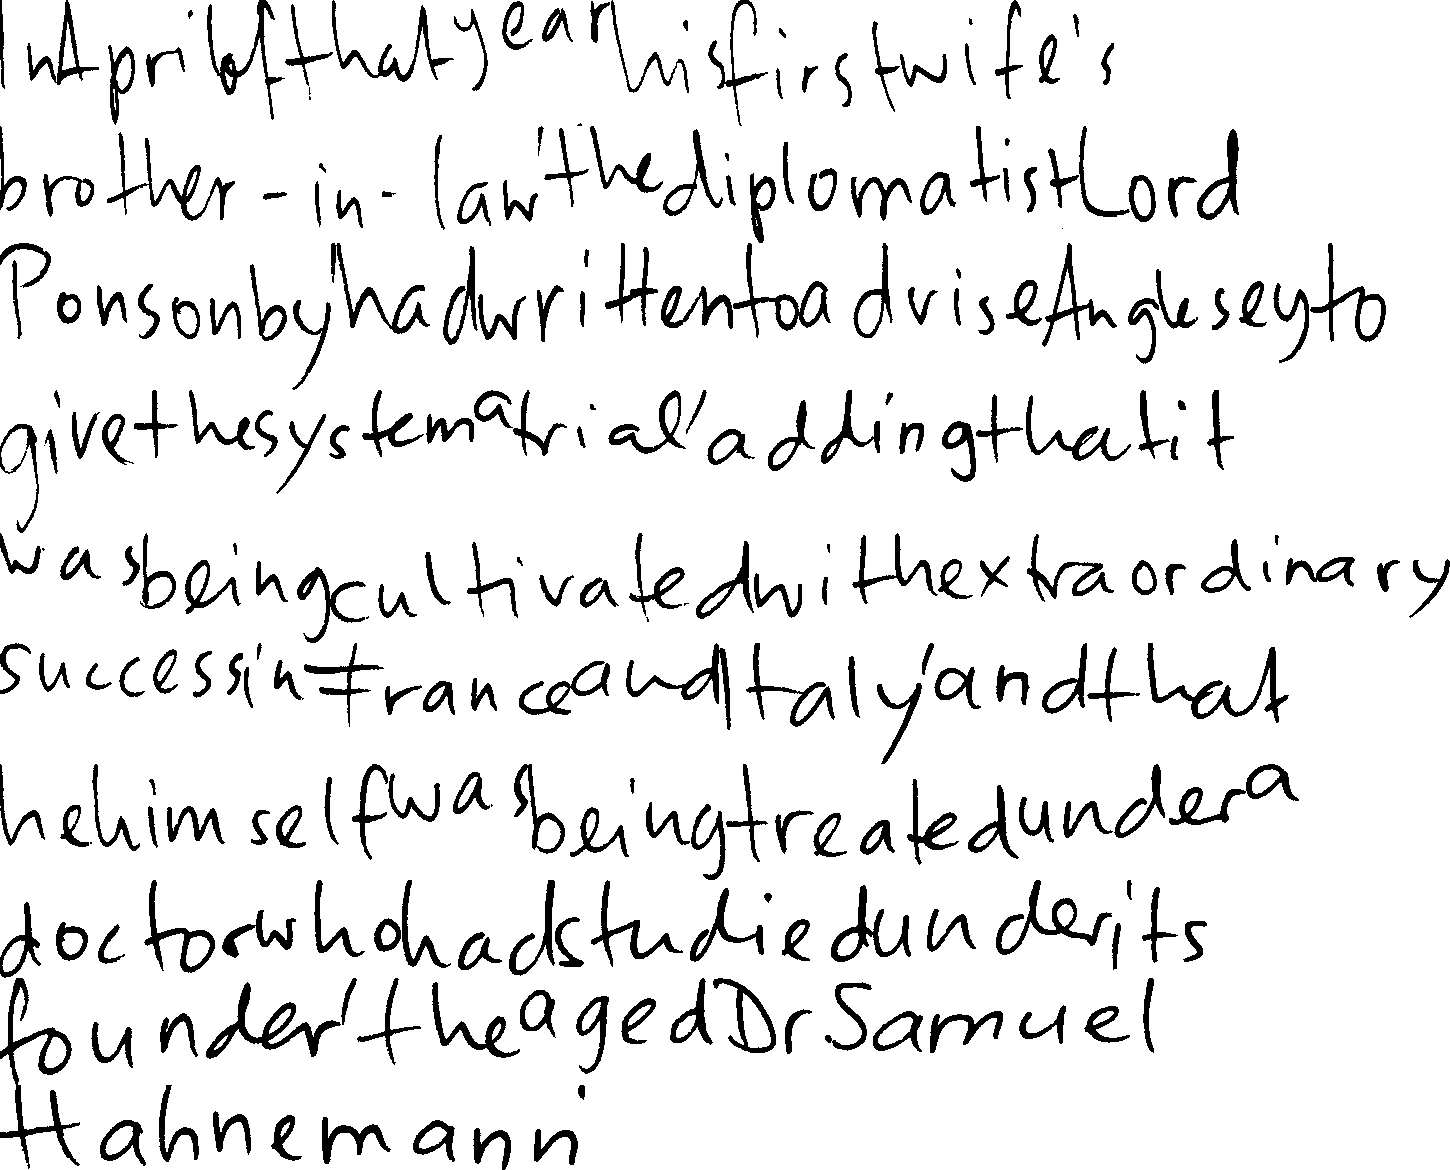 In April of that year his first wife's
brother-in-law, the diplomatist Lord
Ponsonby, had written to advise Anglesey to
give the system a trial, adding that it
was being cultivated with extraordinary
success in France and Italy, and that
he himself was being treated under a
doctor who had studied under its
founder, the aged Dr Samuel
Hahnemann.